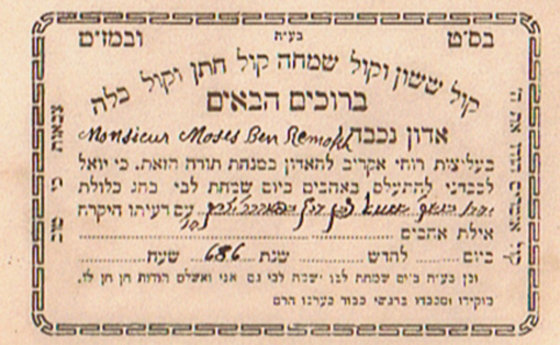 בס״ט בע״ה ובמז״ם
קול ששון וקול שמחה קול חתן וקול כלה
ברוכים הבאים
אדון נכבה
Monsieur Moses Ben Remokh
בעליצות רוחי אקריב להאדון במנחת תורה הזאת. כי יואל
לכבדני להתעלם באהבים ביום שמחת לבי בחג כלולת
עם רעיתו היקרה
אילת אהבים
ביום לחדש שנת 686 שעה
וכן בע״ה ביום שמחת לבו ישבה לבי גם אני ואשלם הודות חן חן לו.
מוקירו ומכבדו ברגשי כבוד כערכו הרם
קול אומרים הודו את ה׳
צבאות כי טוב